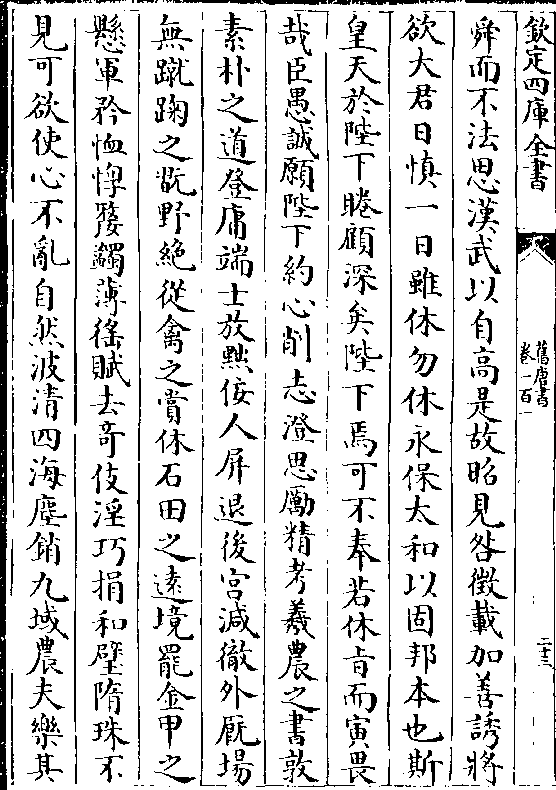 欽定四庫全書
舊唐書
卷一百一
二十三
舜而不法思漢武以自高是故昭見咎徵載加善誘將
欲大君日慎一日雖休勿休永保太和以固邦本也斯
皇天於陛下睠顧深矣陛下焉可不奉若休㫖而寅畏
哉臣愚誠願陛下約心削志澄思勵精考羲農之書敦
素朴之道登庸端士放黜佞人屏退後宫減徹外厩場
無蹴踘之翫野絶從禽之賞休石田之逺境罷金甲之
懸軍矜恤惸嫠蠲薄徭賦去竒伎淫巧捐和璧隋珠不
見可欲使心不亂自然波清四海塵銷九域農夫樂其